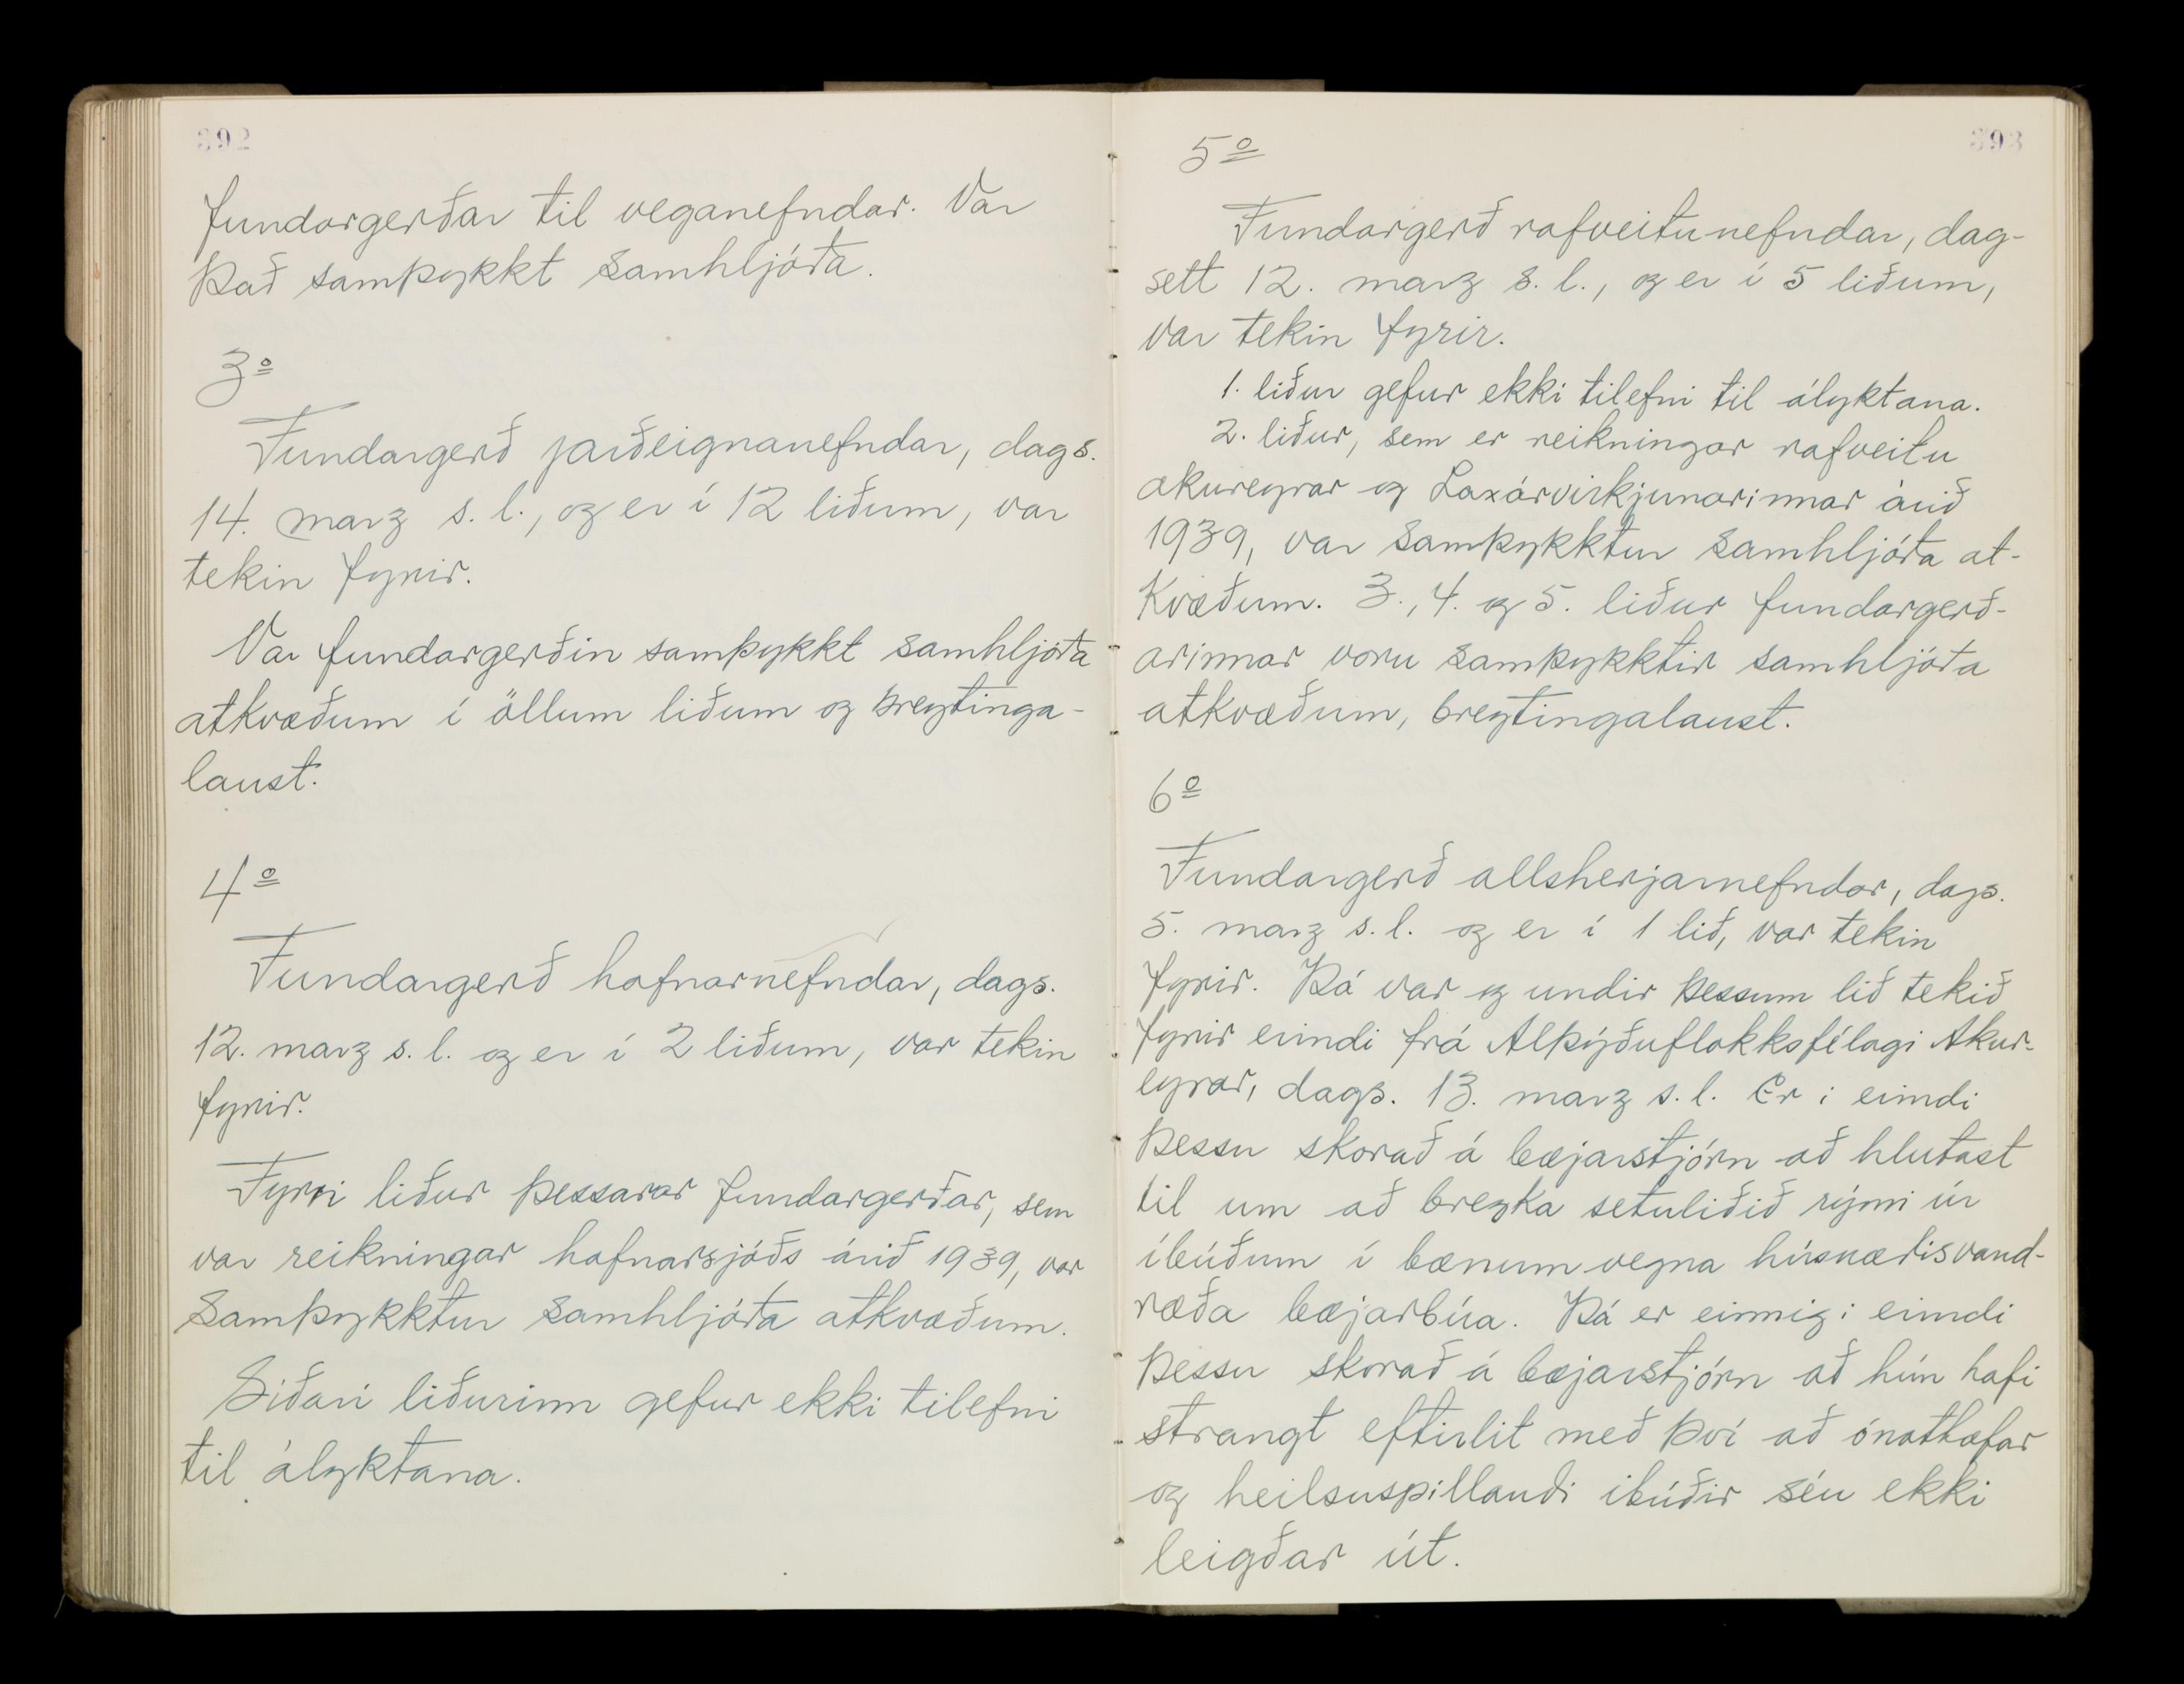 392
fundargerðar til veganefndar. Var
það samþykkt samhljóða.
3º
Fundargerð jarðeignanefndar, dags.
14. marz s.l., og er í 12 liðum, var
tekin fyrir.
Var fundargerðin samþykkt samhljóða
atkvæðum í öllum liðum og breytinga-
laust.
4º
Fundargerð hafnarnefndar, dags.
12. marz s.l. og er í 2 liðum, var tekin
fyrir.
Fyrri liður þessarar fundargerðar, sem
var reikningar hafnarsjóðs árið 1939, var
samþykktur samhljóða atkvæðum.
Síðari liðurinn gefur ekki tilefni
til ályktana.
393
5º
Fundargerð rafveitunefndar, dag-
sett 12. marz s.l., og er í 5 liðum,
var tekin fyrir.
1. liður gefur ekki tilefni til ályktana.
2. liður, sem er reikningar rafveitu
akureyrar og Laxárvirkjunarinnar árið
1939, var samþykktur samhljóða at-
kvæðum. 3., 4. og 5. liður fundargerð-
arinnar voru samþykktir samhljóða
atkvæðum, breytingalaust.
6º
Fundargerð allsherjarnefndar, dags.
5. marz s.l. og er í 1 lið, var tekin
fyrir. Þá var og undir þessum lið tekið
fyrir erindi frá Alþýðuflokksfélagi Akur-
eyrar, dags. 13. marz s.l. Er i erindi
þessu skorað á bæjarstjórn að hlutast
til um að brezka setuliðið rými úr
íbúðum í bænum vegna húsnæðisvand-
ræða bæjarbúa. Þá er einnig i erindi
þessu skorað á bæjarstjórn að hún hafi
strangt eftirlit með því að ónothæfar
og heilsuspillandi ibúðir séu ekki
leigðar út.